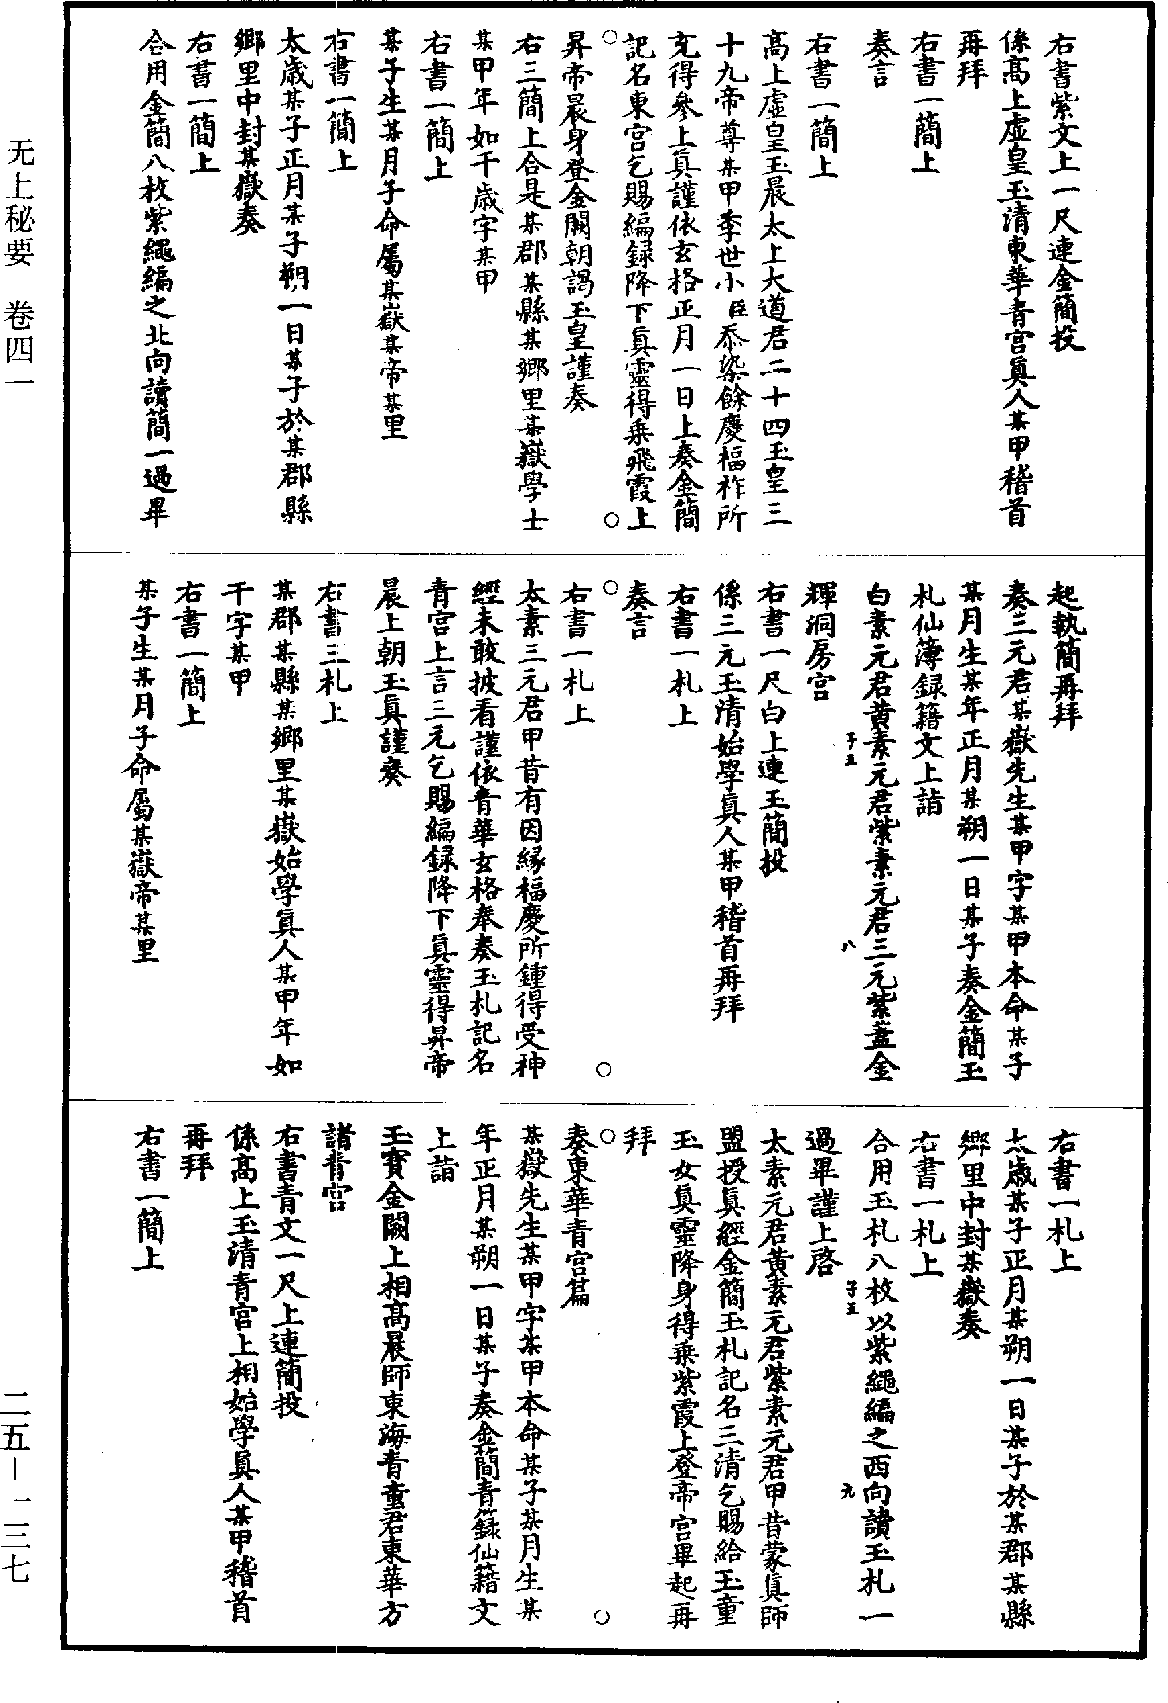 无上秘要　卷四一
右書紫文上一尺連金簡投
係高上虛皇玉清東華青宮眞人某甲稽首
再拜
右書一簡上
奏言
右書一簡上
高上虛皇玉晨太上大道君二十四玉皇三
十九帝尊某甲季世小臣忝染餘慶福祚所
充得參上眞謹依玄格正月一日上奏金簡
記名東宮乞賜編録降下眞靈得乗飛霞上
昇帝晨身登金闕朝謁玉皇謹奏
右三簡上合是某郡某縣某鄉里某嶽學士
某甲年如干歲字某甲
右書一簡上
某子生某月子命屬某嶽某帝某里
右書一簡上
太歲某子正月某子朔一日某子於某郡縣
鄉里中封某嶽奏
右書一簡上
合用金簡八枚紫繩編之北向讀簡一過畢
起執簡再拜
奏三元君某嶽先生某甲字某甲本命某子
某月生某年正月某朔一日某子奏金簡玉
札仙簿録籍文上詣
白素元君黄素元君紫素元君三元紫蓋金
子五　八
輝洞房宮
右書一尺白上連玉簡投
係三元玉清始學眞人某甲稽首再拜
右書一札上
奏言
右書一札上
太素三元君甲昔有因緣福慶所鍾得受神
經未敢披看謹依青華玄格奉奏玉札記名
青宮上言三元乞賜編録降下眞靈得昇帝
晨上朝玉眞謹奏
右書三札上
某郡某縣某鄉里某嶽始學眞人某甲年如
干字某甲
右書一簡上
某子生某月子命屬某嶽帝某里
右書一札上
太歲某子正月某朔一日某子於某郡某縣
鄉里中封某嶽奏
右書一札上
合用玉札八枚以紫繩編之西向讀玉札一
子五　九
過畢謹上啓
太素元君黄素元君紫素元君甲昔蒙眞師
盟授眞經金簡玉札記名三清乞賜給玉童
玉女眞靈降身得乗紫霞上登帝宮畢起再
拜
奏東華青宮篇
某嶽先生某甲字某甲本命某子某月生某
年正月某朔一日某子奏金簡青籙仙籍文
上詣
玉寶金闕上相高晨師東海青童君東華方
諸青宮
右書青文一尺上連簡投
係高上玉清青宮上相始學眞人某甲稽首
再拜
右書一簡上
二五—一三七